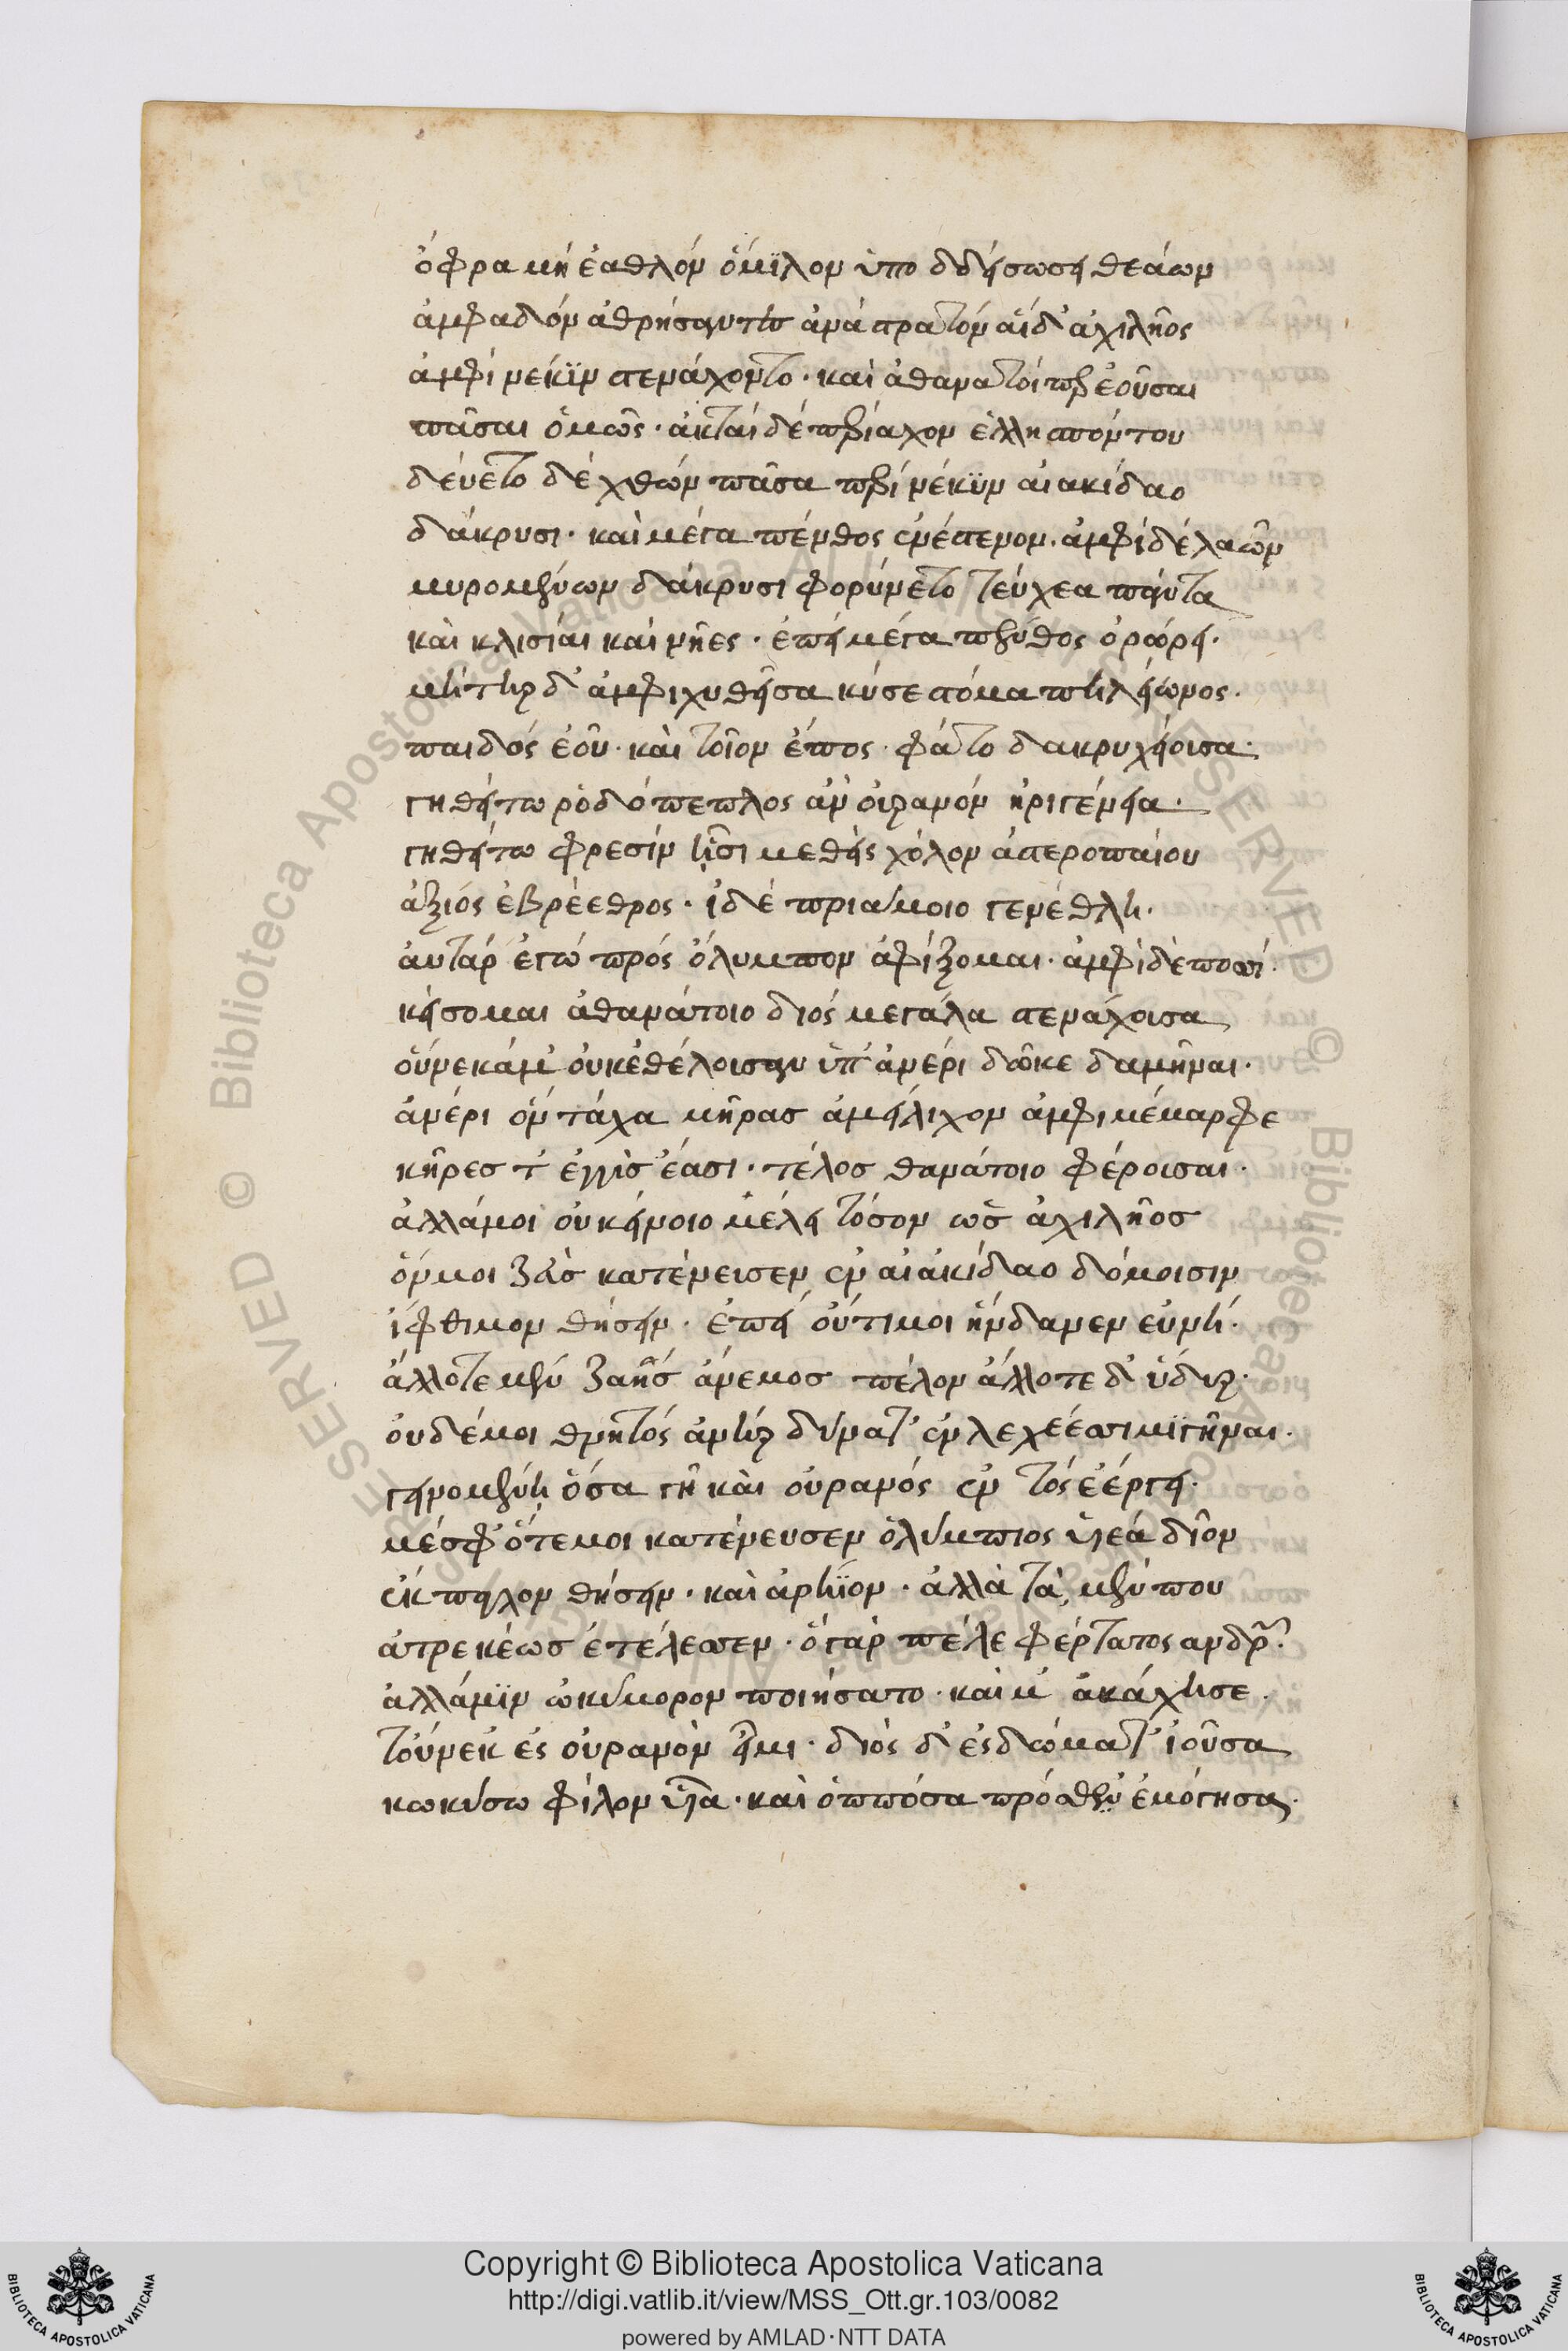 ὄφρα μὴ ἐσθλὸν ὅμϊλον ὑπο δδείσωσει θεάων
ἀμφαδὸν ἀθρήσαντες ἀνὰ στρατόν αἵδ' ἀχιλῆος
ἀμφὶ νέκϊν στενάχοντο· καὶ ἀθανατοί περ ἐοῦσαι
πᾶσαι ὁμῶς· ἀκταί δέ περίαχον ἑλλησπόντου
δεύετο δὲ χθών πᾶσα περί νέκϋν αἰακίδαο
δάκρυσι· καὶ μέγα πένθος ἐνέστενον· ἀμφὶ δὲ λαῶν
μυρομένων δάκρυσι φορύνετο τεύχεα πάντα
καὶ κλισίαι καὶ νῆες· ἐπεί μέγα πένθος ὀρώρει·
μήτηρ δ' ἀμφιχυθεῖσα κύσε στόμα πηλείωνος·
παιδός ἑοῦ· καὶ τοῖον ἔπος φάτο δακρυχέοισα·
γηθείτω ῥοδόπεπλος ἀν οὐρανόν ἠριγένεια·
γηθείτω φρεσίν ᾗσι μεθείς χόλον ἀστεροπαίου
ἀξιός ἐβρέεθρος· ἰδέ πριάμοιο γενέθλη·
αὐτάρ ἐγώ πρός ὄλυμπον ἀφίξομαι· ἀμφὶ δὲ ποσσί·
κείσομαι ἀθανάτοιο διός μεγάλα στενάχοισα
οὕνεκάμ' οὐκ ἐθέλοισαν ὑπ' ἀνέρι δῶκε δαμῆναι·
ἀνέρι ὅν τάχα κῆρασ ἀμείλιχον ἀμφιμέμαρφε
κῆρεσ τ' ἐγγὺσ ἔασι· τέλοσ θανάτοιο φέροισαι·
ἀλλάμοι οὐ κείνοιο μέλει τόσον ὡσ ἀχιλῆοσ
ὅνμοι ζεὺσ κατένεισεν ἐν αἰακίδαο δόμοισιν
ἴφθιμον θήσειν· ἐπεί οὔτιμοι ἥνδανεν εὐνή·
ἄλλοτε μέν ζαῆσ ἄνεμοσ πέλον ἄλλοτε δ' ὕδωρ·
οὐδέμοι θνητός ἀνήρ δύνατ' ἐν λεχέεσσι μϊγῆναι·
γεινομένη ὅσα γῆ καὶ οὐρανός ἐν τός ἐέργει·
μέσφ' ὅτεμοι κατένευσεν ὀλύμπιος υἱεά δῖον
ἔκπαγλον θήσειν· καὶ ἀρήϊον· ἀλλὰ τὰ μέν που
ἀτρεκέωσ ἐτέλεσσεν· ὁ γὰρ πέλε φέρτατος ἀνδρῶν·
ἀλλάμϊν ὠκύμορον ποιήσατο· καὶ μ' ἀκάχησε·
τοὔνεκ ἐς οὐρανὸν εἶμι· διὸς δ' ἐς δώματ' ἰοῦσα
κωκύσω φίλον υἷα· καὶ ὁππόσα πρόσθεν ἐμόγησα·
Copyright © Biblioteca Apostolica Vaticana
http://digi.vatlib.it/view/MSS_Ott.gr.103/0082
powered by AMLAD·NTT DATA